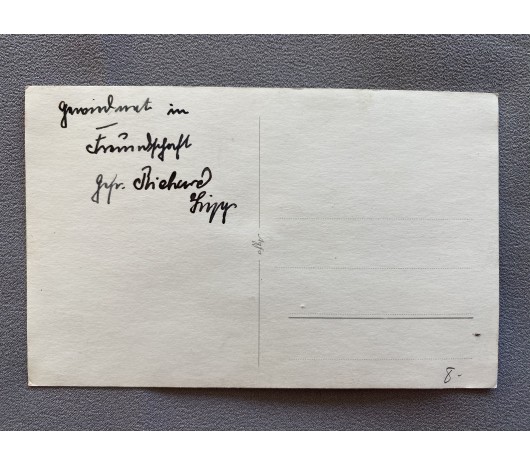 Gewidmet in
Freundschaft
Gefr. Richard
8.-